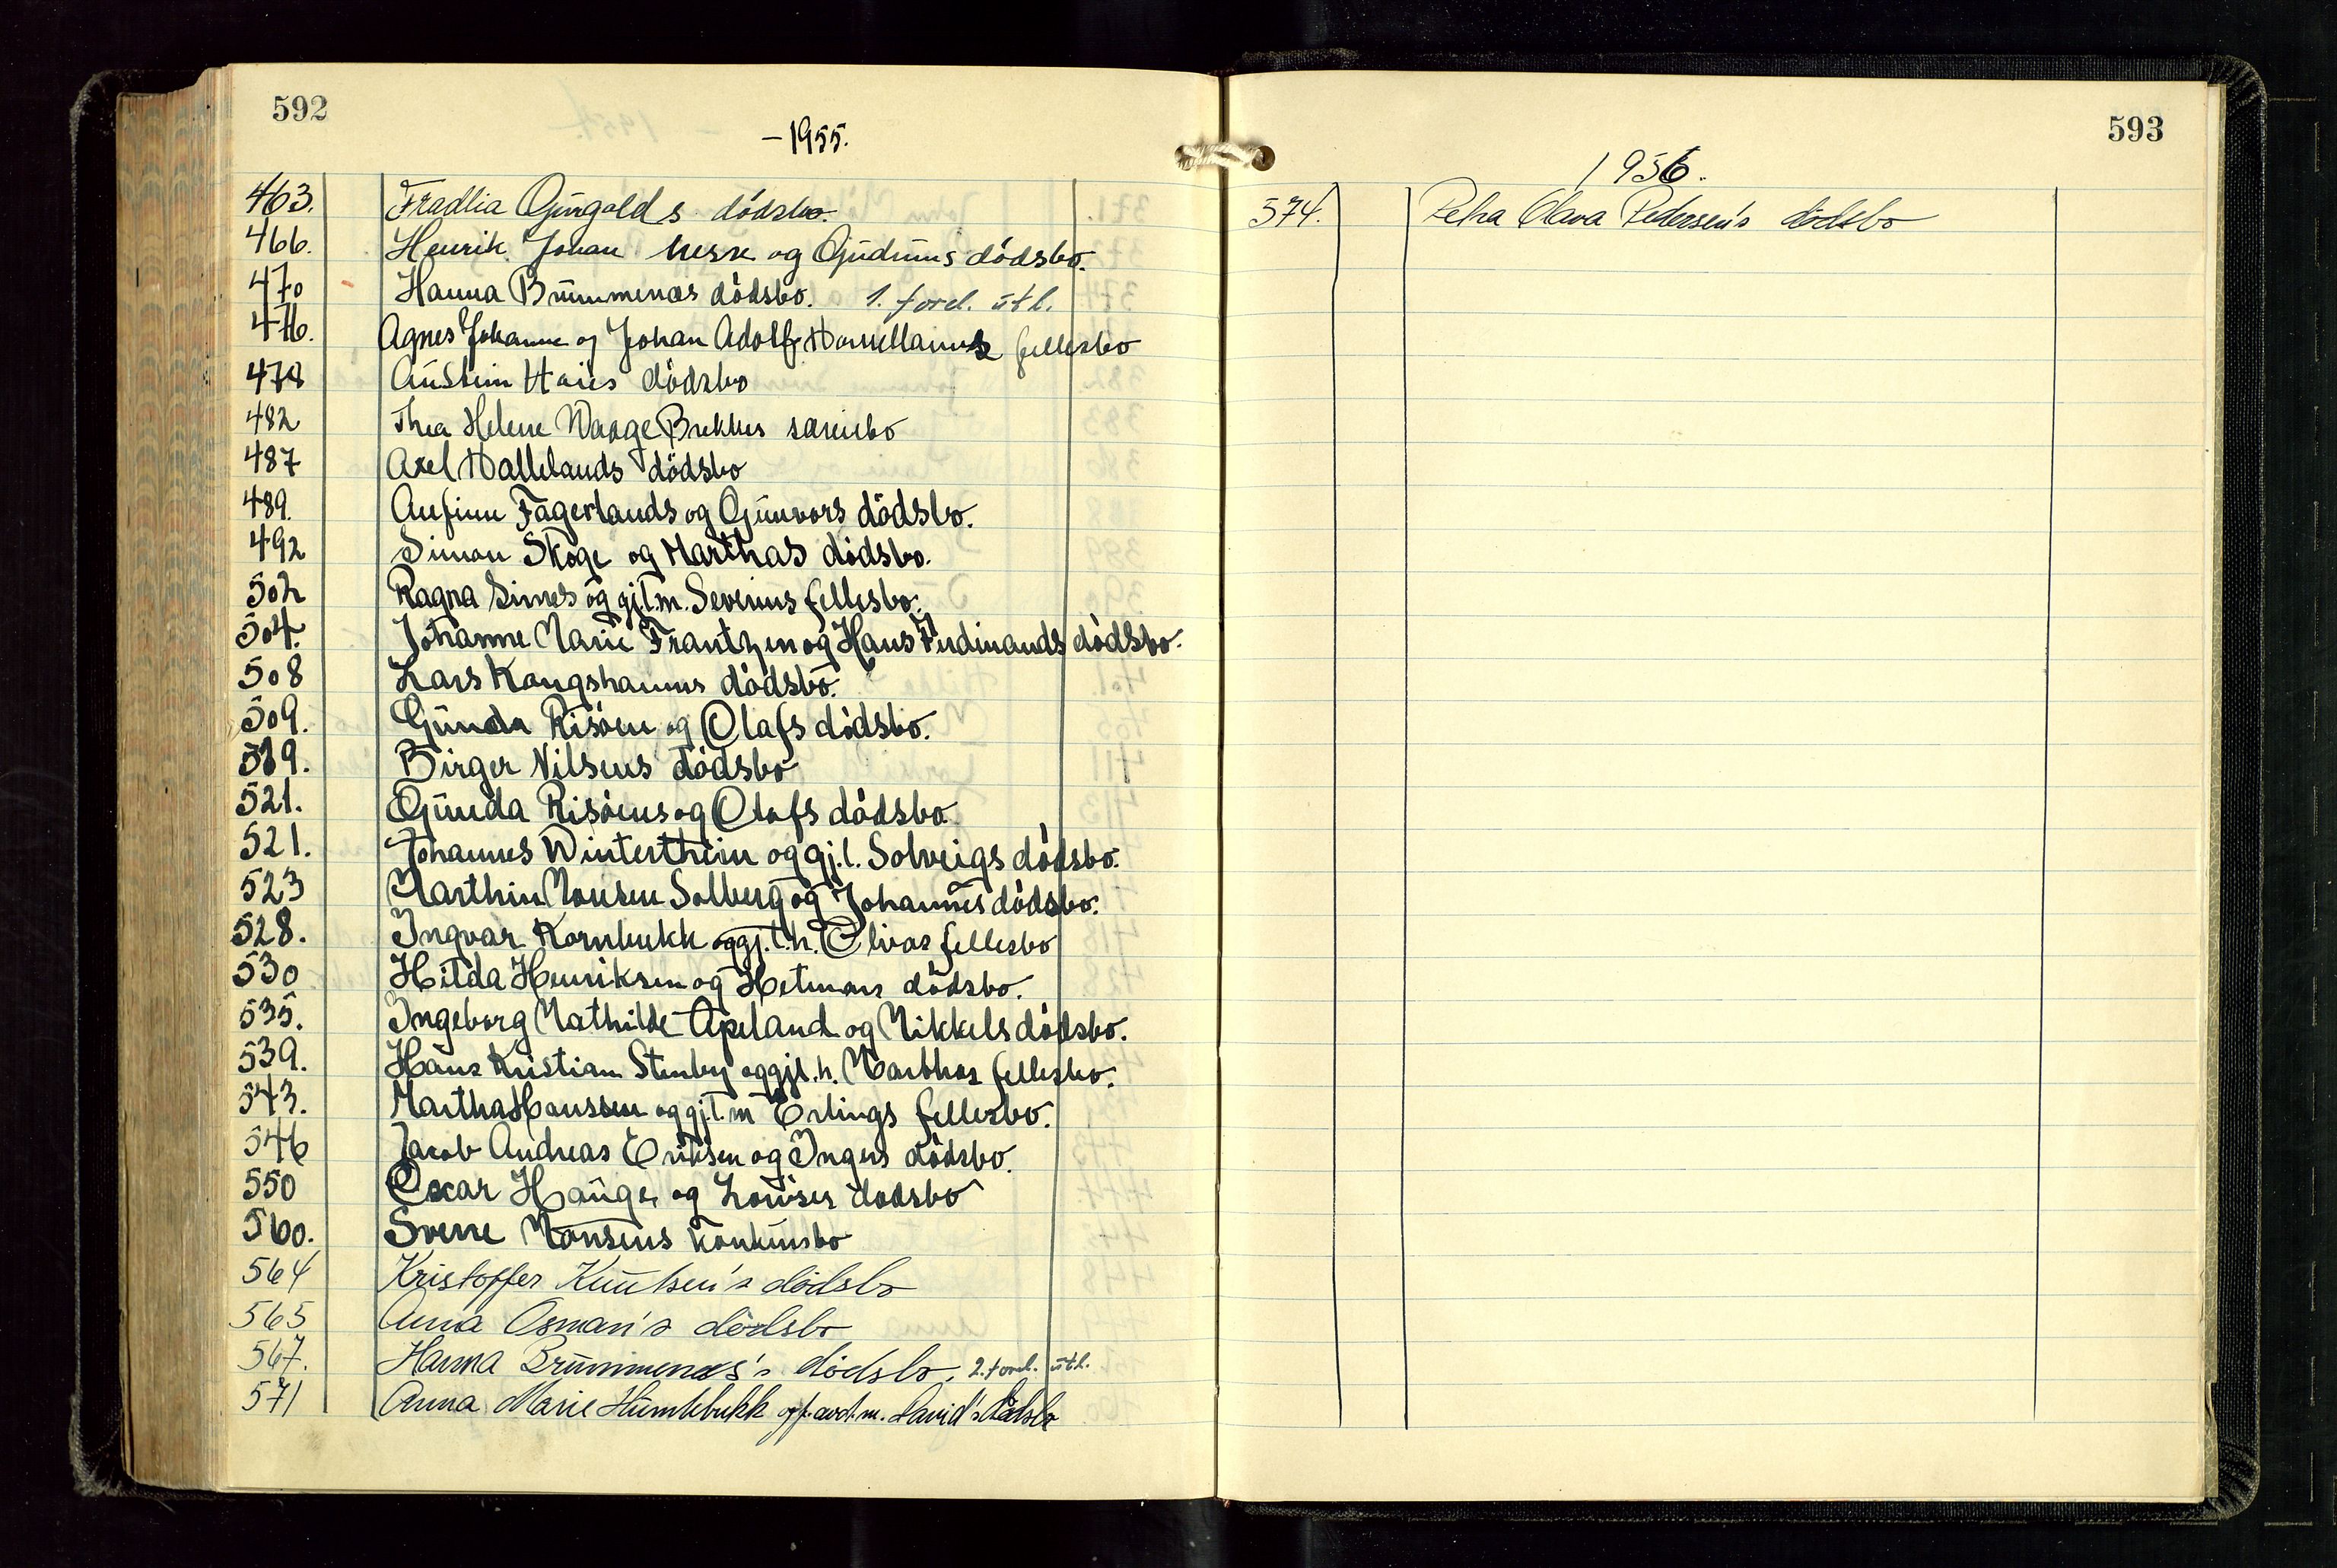 592
-1955.
463. Fradlia Gjurgolds dödsbo.
466. Henrik Johan Nesse og Gudruns dödsbo.
470 Hanna Brummenæs dödsbo. 1. ford. utl.
476. Agnes Johanne og Johan Adolf fellesbo
478 Austein Høies dödsbo
482 Thea Helene Waage Brekkes særeiebo
487 Axel Hallelands dödsbo
489. Anfinn Fagerlands og Gunvors dödsbo.
492 Simon Skoge og Marthas dödsbo.
502 Ragna Simes og gjl.m. Severins fellesbo.
504. Johanne Marie Frantzen og Hans Ferdinands dödsbo.
508 Lars Kongshavns dödsbo.
509. Gunda Risöen og Olafs dödsbo.
519. Birger Nilsens dödsbo
521. Gunda Risöens og Olafs dödsbo.
521. Johannes Winterthun og gj.l. Solveigs dödsbo.
523 Marthin Monsen Solberg og Johannes dödsbo.
528. Ingvar Kornbrekk og gj.l.h. Olivas fellesbo
530 Hilda Henriksen og Hetmans dödsbo.
535. Ingeborg Mathilde Apeland og Mikkels dödsbo.
539. Hans Kristian Stenby og gjl.h. Marthas fellesbo.
543. Martha Hanssen og gjl.m Erlings fellesbo.
546 Jacob Andreas Eriksen og Ingers dödsbo.
550 Oscar Hauge og Louises dödsbo
560. Sverre Monsens konkursbo
564 Kristoffer Knutsen's dödsbo
565 Anna Osman's dödsbo
567. Hanna Brummenæs's dödsbo. 2. ford. utl.
571 Anna Marie Humlebrekk og f. avd. m. David's dödsbo
593
1956.
574. Petra Olava Pedersen's dödsbo